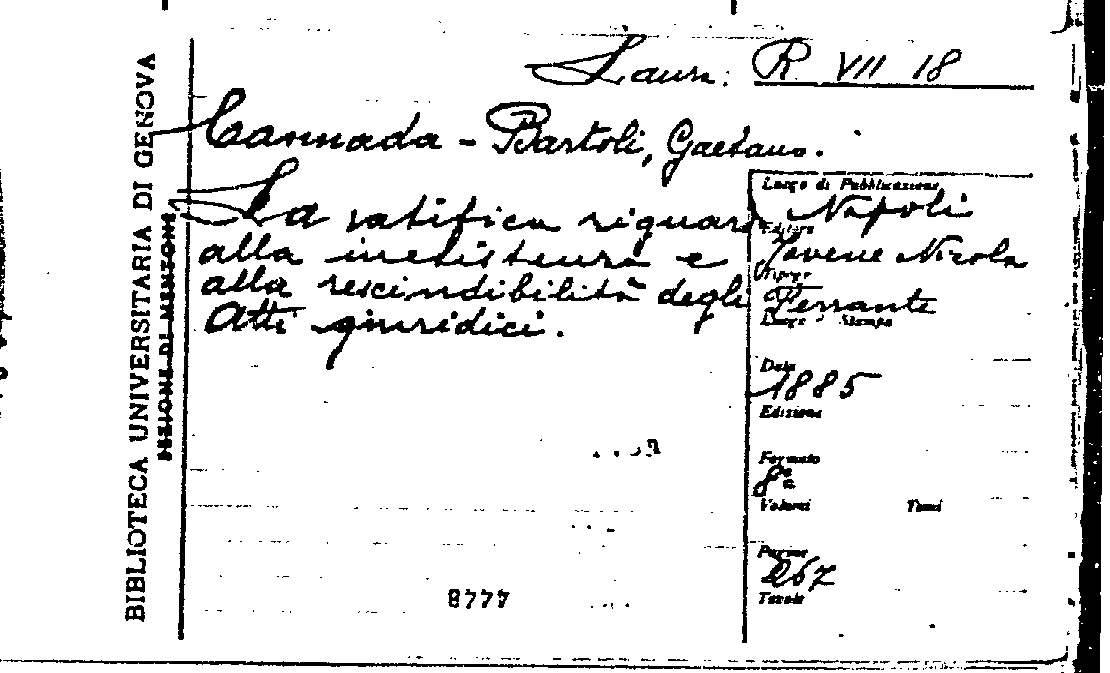 BIBLIOTECA UNIVERSITARIA DI GENOVA
SEZIONE DI MENTONE
Laur. R VII 18
Cannada - Bartoli, Gaetano.
La ratifica riguardo
alla inesistenza e
alla rescindibilità degli
Atti giuridici.
Luogo di Pubblicazione
Napoli
Editore
Jovene Nicola
Tipogr
Ferrante
Luogo Stampa
Data
1885
Edizione
Formato
8°
Volumi Tomi
Pagine
267
Tavole
8777